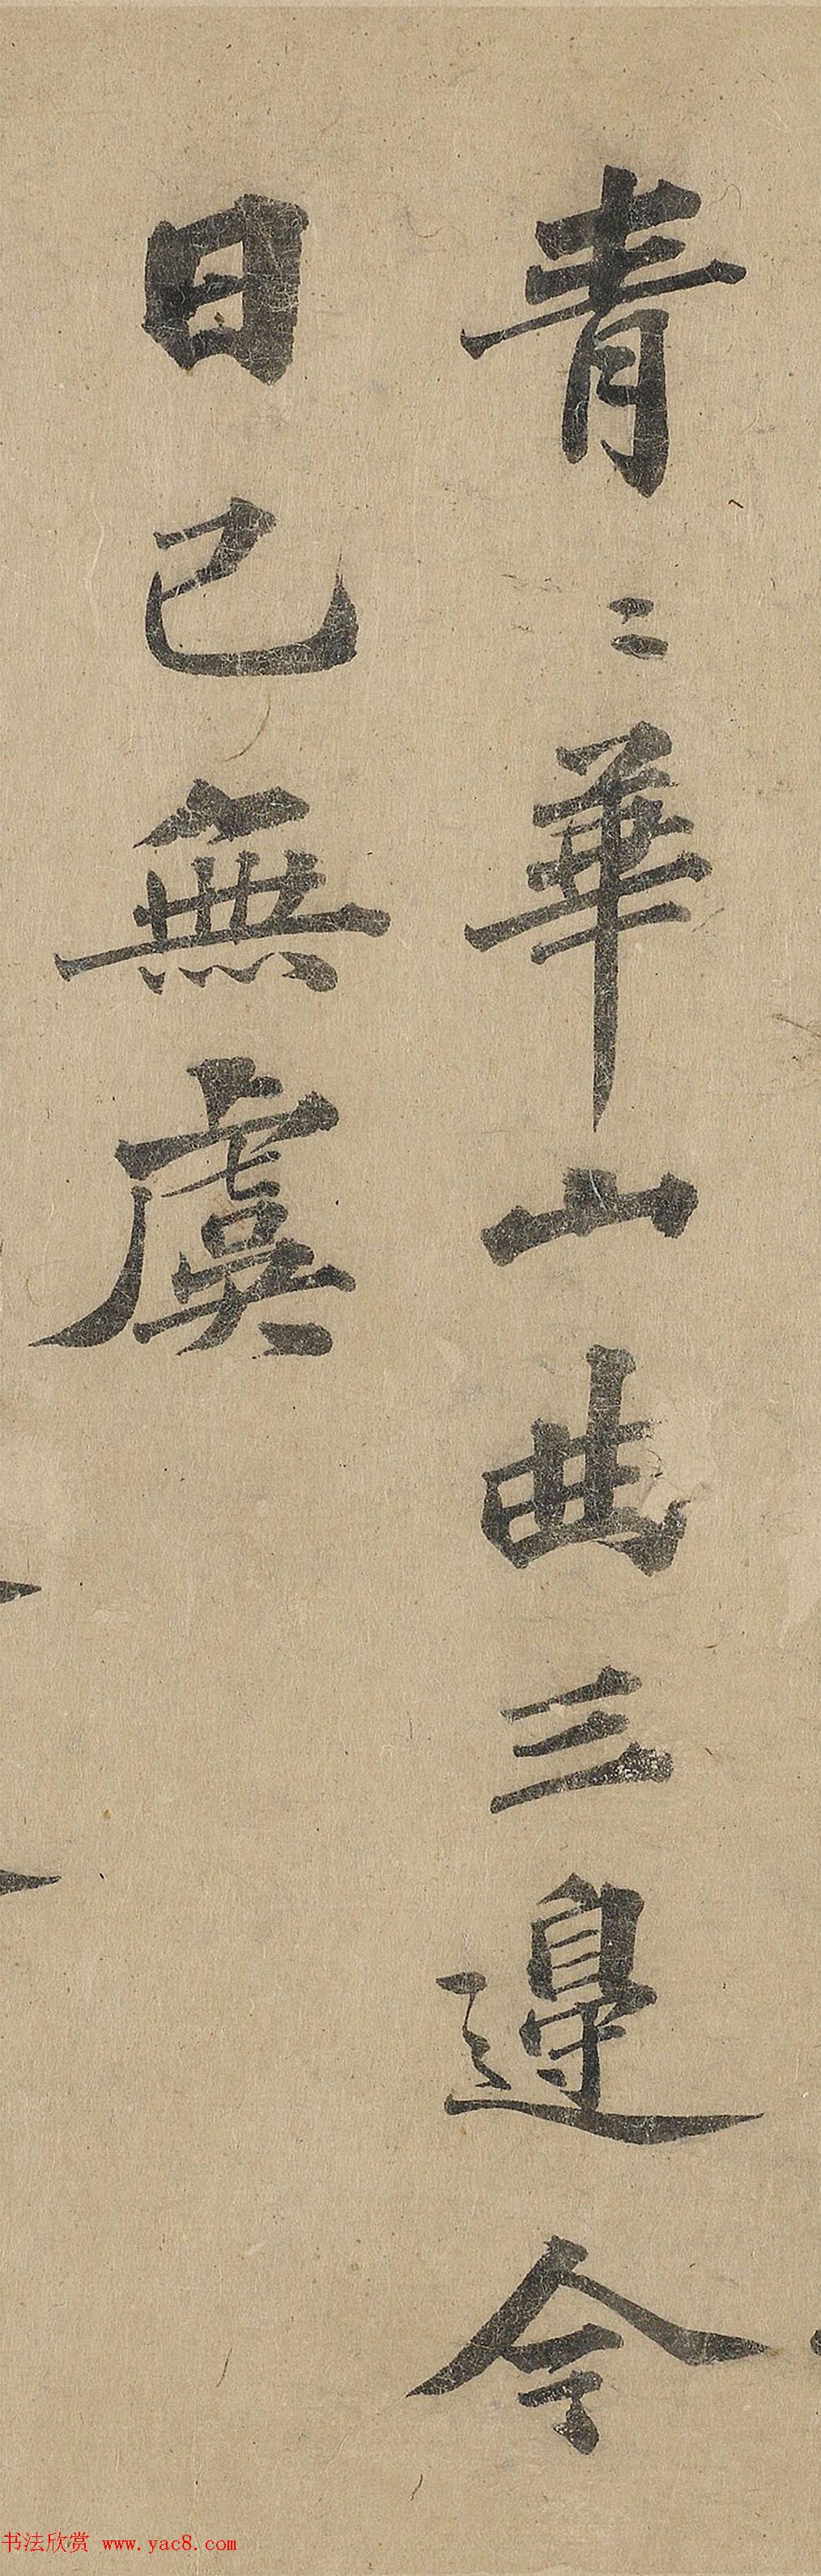 青〻華山曲三邊今
日已無虞
书法欣赏 www.yac8.com